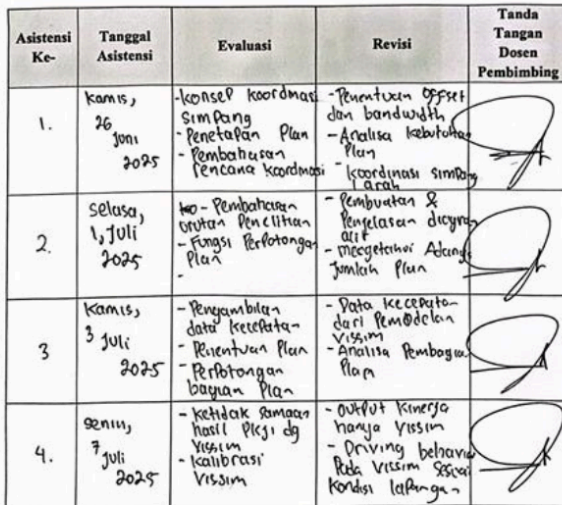 Asistensi Ke-
Tanggal Asistensi
Evaluasi
Revisi
Tanda Tangan Dosen Pembimbing
1.
Kamis,
26
Juni
2025
-Konsep koordinasi
Simpang
- Penetapan Plan
- Pembahasan
rencana koordinasi
- Penentuan Offset
dan bandwidth
- Analisa kebutuhan
Plan
- koordinasi simpang
1 arah
2.
Selasa,
1, Juli
2025
- Pembahasan
urutan Penelitian
- Fungsi Perpotongan
Plan
-
- Pembuatan &
Penjelasan diagram
alir
- mengetahui Adanya
Jumlah Plan
3
Kamis,
3 Juli
2025
- Pengambilan
data kecepatan
- Penentuan Plan
- Perpotongan
bagian Plan
- Data kecepatan
dari Pemodelan
Vissim
- Analisa Pembagian
Plan
4.
Senin,
7 Juli
2025
- ketidak samaan
hasil PKJI dg
Vissim
- kalibrasi
Vissim
- Output Kinerja
hanya Vissim
- Driving behavior
Pada Vissim Sesuai
Kondisi lapangan